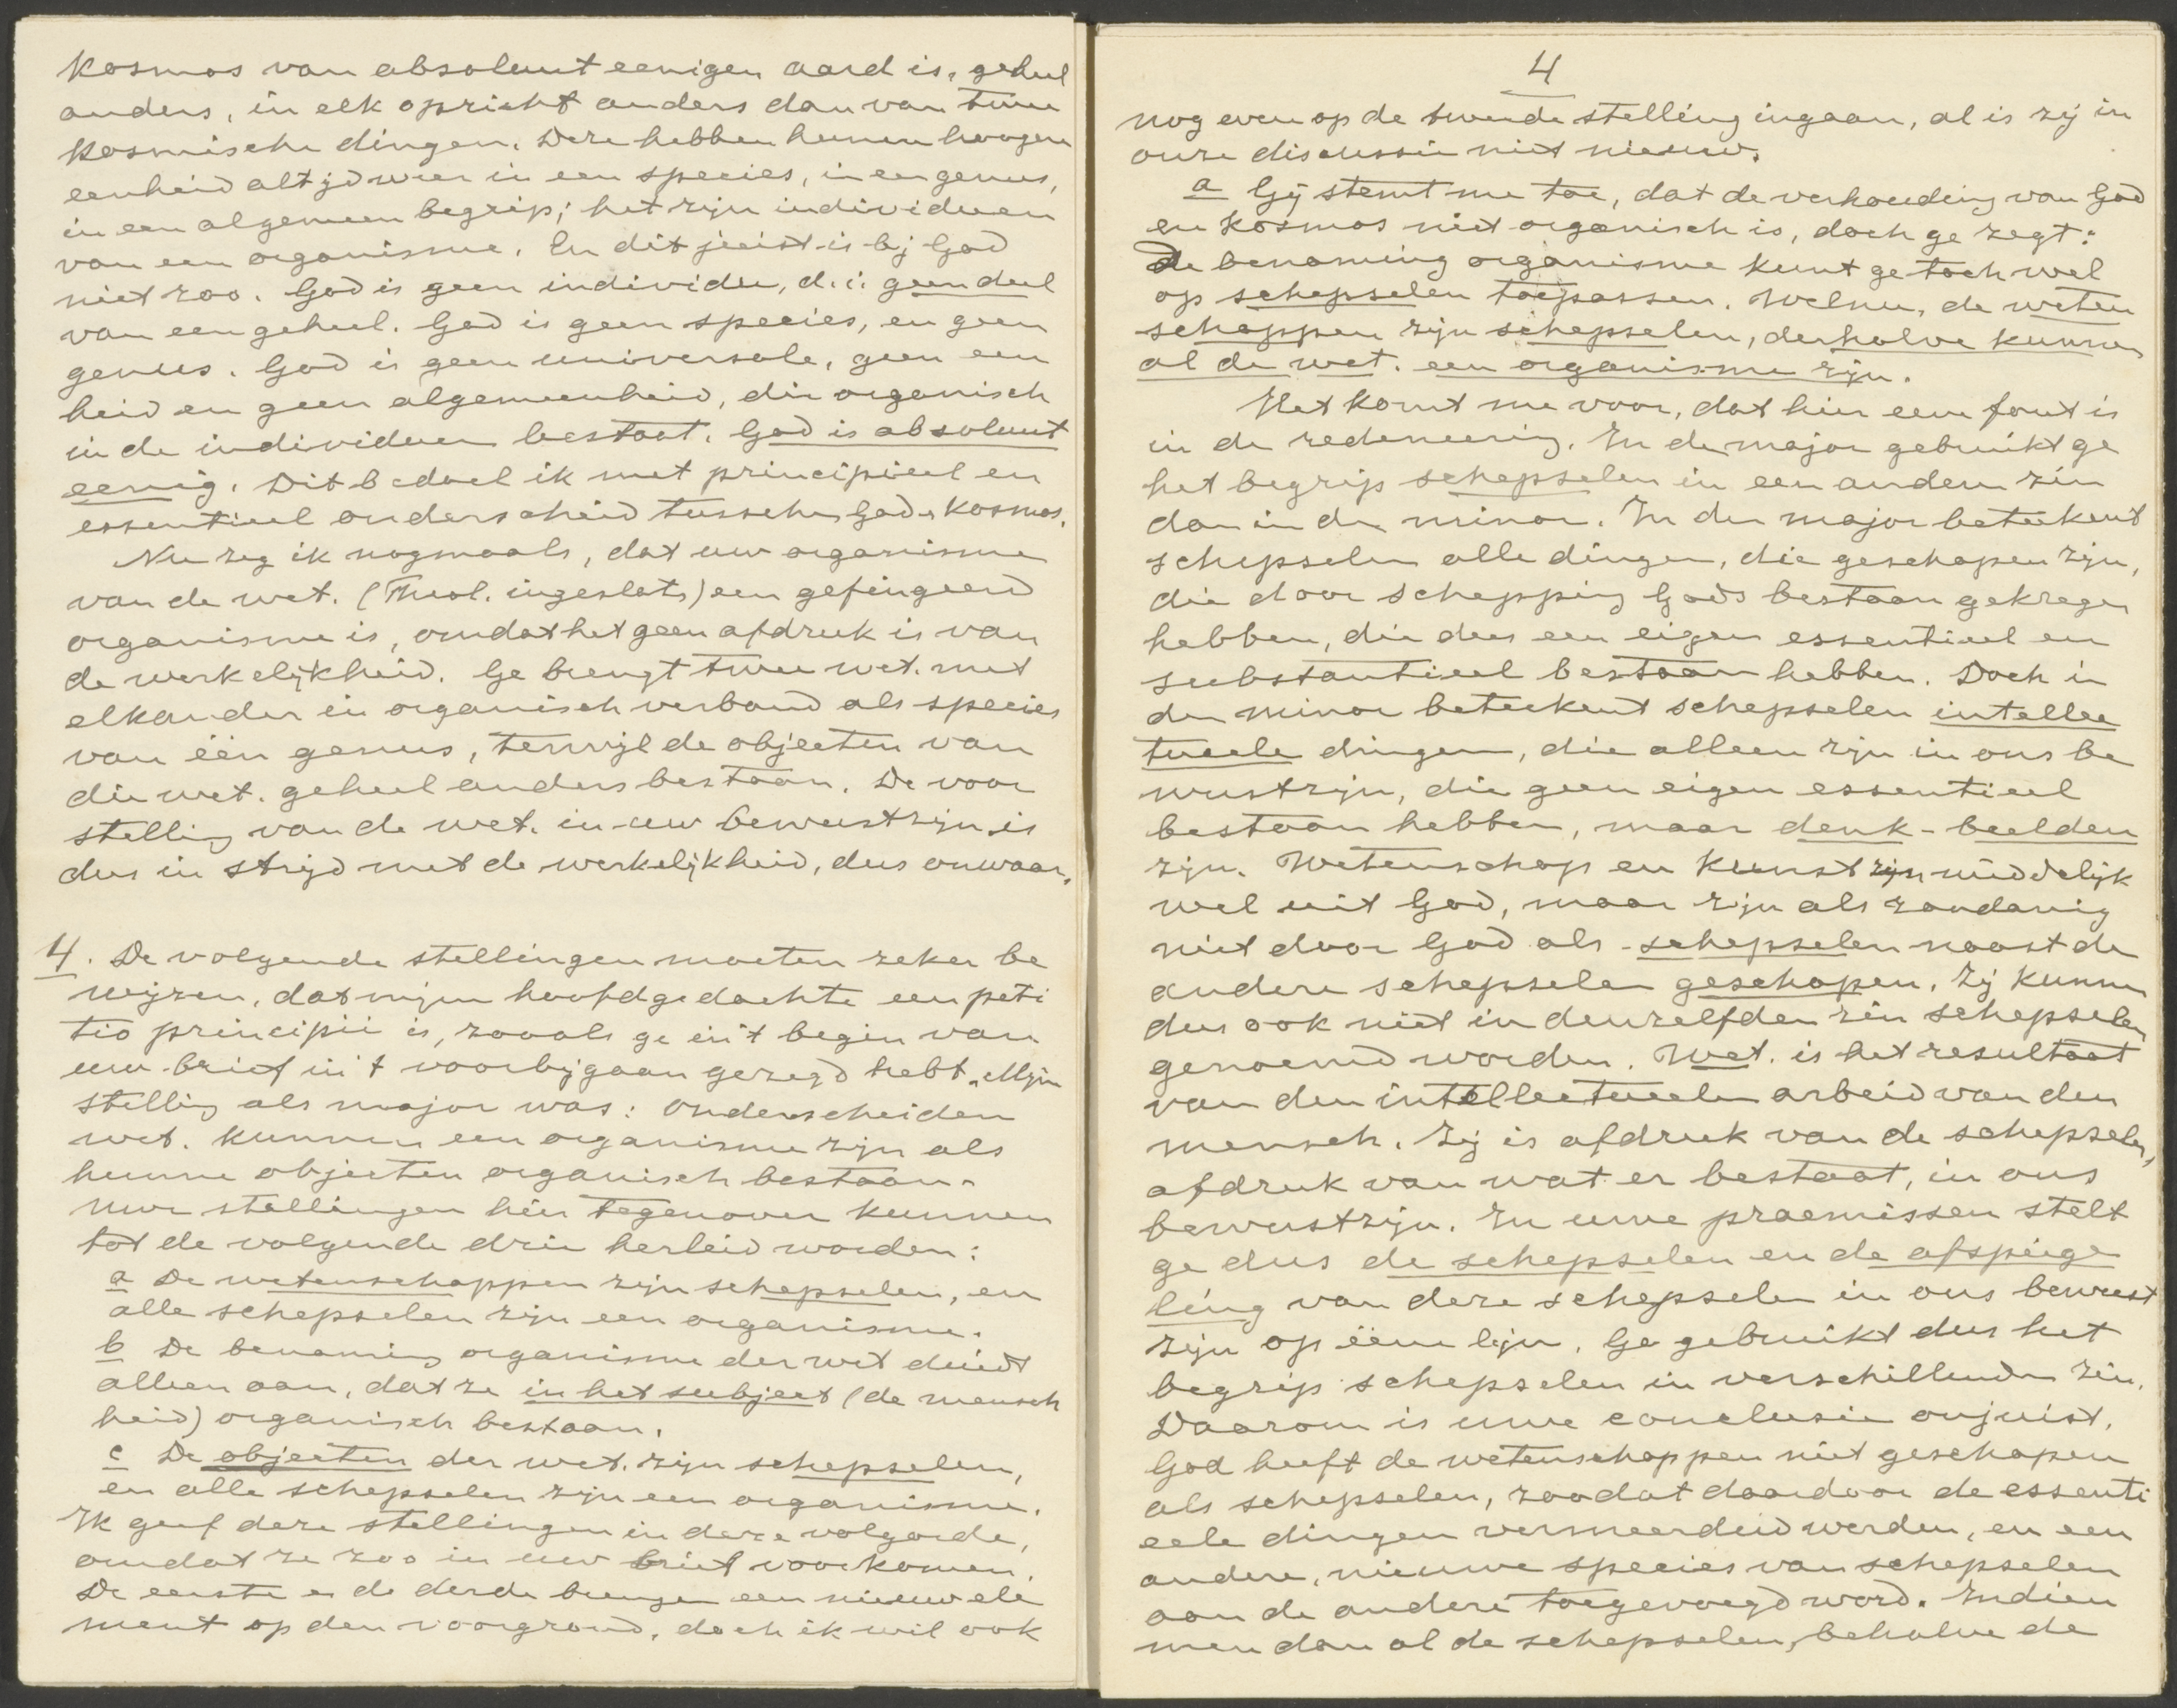 kosmos van absoluut eenigen aard is, geheel
anders, in elk opzicht anders dan van twee
kosmische dingen. Deze hebben hunne hoogere
eenheid altijd weer in een species, in een genus,
in een algemeen begrip; het zijn individuen
van een organisme. En dit juist is bij God
niet zoo. God is geen individu, d.i. geen deel
van een geheel. God is geen species, en geen
genus. God is geen universale, geen een
heid en geen algemeenheid, die organisch
in de individuen bestaat. God is absoluut
eenig. Dit bedoel ik met principieel en
essentieel onderscheid tusschen God en kosmos.
Nu zeg ik nogmaals, dat uw organisme
van de wet. (Theol. ingeslots) een gefingeerd
organisme is, omdat het geen afdruk is van
de werkelijkheid. Ge brengt twee wet. met
elkander in organisch verband als species
van één genus, terwijl de objecten van
die wet. geheel anders bestaan. De voor
stelling van de wet. in uw bewustzijn is
dus in strijd met de werkelijkheid, dus onwaar.
4. De volgende stellingen moeten zeker be
wijzen, dat mijn hoofdgedachte een peti
tio principii is, zooals ge in 't begin van
uw brief in 't voorbijgaan gezegd hebt. Mijn
stelling als major was: onderscheiden
wet. kunnen een organisme zijn als
hunne objecten organisch bestaan.
Uwe stellingen hier tegenover kunnen
tot de volgende drie herleid worden:
a De wetenschappen zijn schepselen, en
alle schepselen zijn een organisme.
b De benaming organisme der wet duidt
alleen aan, dat ze in het subject (de mensch
heid) organisch bestaan.
c De objecten der wet. zijn schepselen,
en alle schepselen zijn een organisme.
Ik geef deze stellingen in deze volgorde,
omdat ze zoo in uw brief voorkomen.
De eerste en de derde brengen een nieuw ele
ment op den voorgrond, doch ik wil ook
4
nog even op de tweede stelling ingaan, al is zij in
onze discussie niet nieuw.
a Gij stemt me toe, dat de verhouding van God
en kosmos niet organisch is, doch ge zegt:
De benaming organisme kunt ge toch wel
op schepselen toepassen. Welnu, de weten
schappen zijn schepselen, derhalve kunnen
al de wet. een organisme zijn.
Het komt me voor, dat hier eene fout is
in de redeneering. In de major gebruikt ge
het begrip schepselen in een anderen zin
dan in de minor. In den major beteekent
schepselen alle dingen, die geschapen zijn,
die door schepping Gods bestaan gekregen
hebben, die dus een eigen essentieel en
substantieel bestaan hebben. Doch in
den minor beteekent schepselen intellec
tueele dingen, die alleen zijn in ons be
wustzijn, die geen eigen essentieel
bestaan hebben, maar denk-beelden
zijn. Wetenschap en kunst zijn middelijk
wel uit God, maar zijn als zoodanig
niet door God als schepselen naast de
andere schepselen geschapen. Zij kunnen
dus ook niet in denzelfden zin schepselen
genoemd worden. Wet. is het resultaat
van den intellectueelen arbeid van den
mensch. Zij is afdruk van de schepselen,
afdruk van wat er bestaat, in ons
bewustzijn. In uwe praemissen stelt
ge dus de schepselen en de afspiege
ling van deze schepselen in ons bewust
zijn op ééne lijn. Ge gebruikt dus het
begrip schepselen in verschillenden zin.
Daarom is uwe conclusie onjuist.
God heeft de wetenschappen niet geschapen
als schepselen, zoodat daardoor de essenti
eele dingen vermeerderd werden, en een
andere, nieuwe species van schepselen
aan de andere toegevoegd werd. Indien
men dan al de schepselen, behalve de